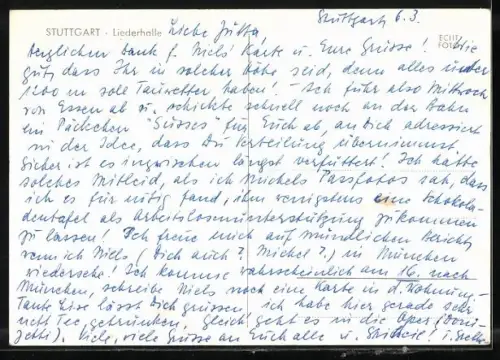 Stuttgart 6.3.
STUTTGART - Liederhalle Liebe Jutta,
ECHT FOTO
Herzlichen Dank f. Niels' Karte u. Eure Grüsse! Wie
gut, dass Ihr in solcher Höhe seid, denn alles unter
1200 m soll Tauwetter haben! - Ich fuhr also Mittwoch
von Essen ab u. schickte schnell noch an der Bahn
ein Päckchen "Süsses" für Euch ab, an Dich adressiert
in der Idee, dass Du Verteilung übernimmst.
Sicher ist es inzwischen längst verfüttert! Ich hatte
solches Mitleid, als ich Michels Passfotos sah, dass
ich es für nötig fand, ihm wenigstens eine Schokola-
dentafel als Arbeitslosenunterstützung zukommen
zu lassen! Ich freue mich auf mündlichen Bericht,
wenn ich Niels (Dich auch? Michel?) in München
wiedersehe! Ich komme wahrscheinlich am 16. nach
München, schreibe Niels noch eine Karte in d. Wohnung.-
Tante Lise lässt Dich grüssen, ich habe hier gerade sehr
nett Tee getrunken, gleich geht es in die Oper (Doni-
zetti). Viele, viele Grüsse an Euch alle u.